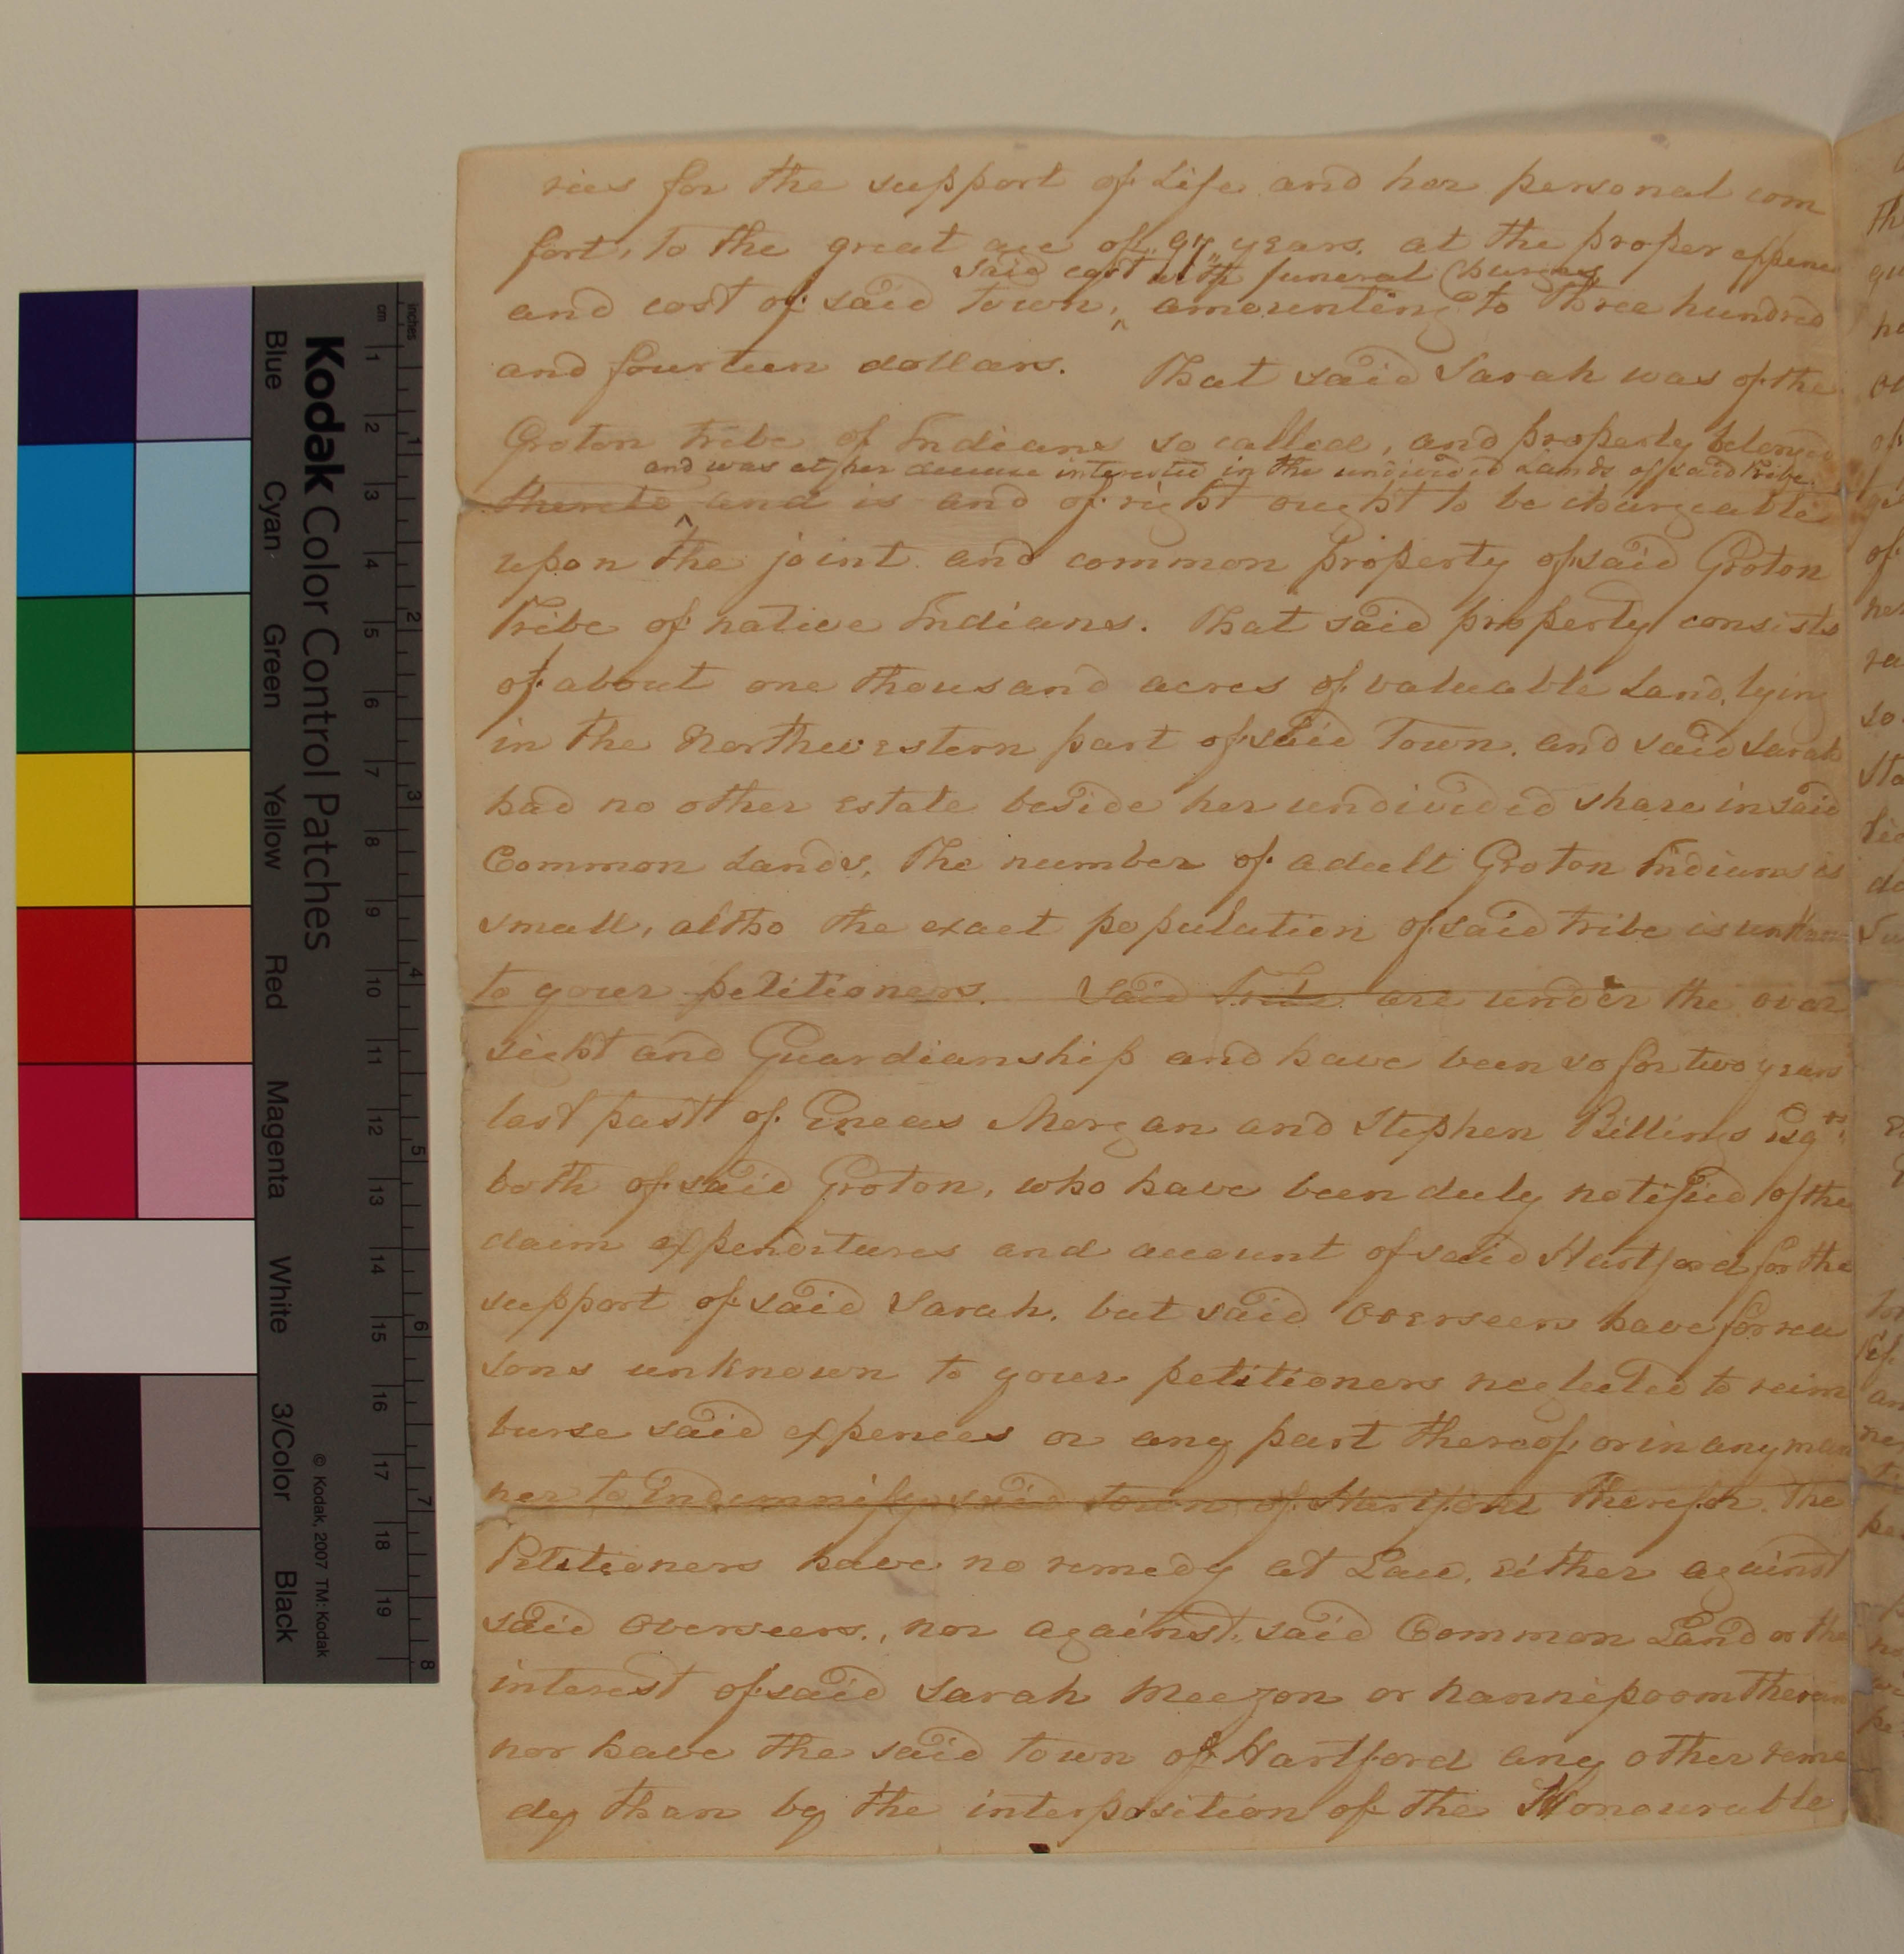 ries for the support of Life and her personal com
fort, to the great age of 97 years. at the proper expence
said cost with funeral Charges
and cost of said town, ^ amounting to Three hundred
and fourteen dollars. That said Sarah was of the
Groton tribe of Indians so called, and properly belonged
and was at her decease interested in the undivided Lands of said Tribe.
thereto ^ and is and of right ought to be chargeable
upon the joint and common property of said Groton
Tribe of native Indians. That said property consists
of about one thousand acres of valuable Land, lying
in the Northwestern part of said Town. and said Sarah
had no other Estate beside her undivided share in said
Common Lands, The number of adult Groton Indians is
small, altho the exact population of said tribe is unknown
to your petitioners. Said Tribe are under the over
sight and Guardianship and have been so for two years
last past of Eneas Morgan and Stephen Billings Esqrs.
both of said Groton, who have been duly notified of the
claim expenditures and account of said Hartford for the
support of said Sarah. but said Overseers have for rea
sons unknown to your petitioners neglected to reim
burse said expences or any part thereof or in any man
ner to Indemnify said town of Hartford therefor. The
Petitioners have no remedy at Law, either against
said Overseers, nor against said Common Land or the
interest of said Sarah Meezon or nannipoom therein
nor have the said town of Hartford any other reme
dy than by the interposition of the Honourable
Kodak Color Control Patches
Blue Cyan Green Yellow Red Magenta White 3/Color Black
© Kodak, 2007 TM: Kodak
cm 1 2 3 4 5 6 7 8 9 10 11 12 13 14 15 16 17 18 19
inches 1 2 3 4 5 6 7 8